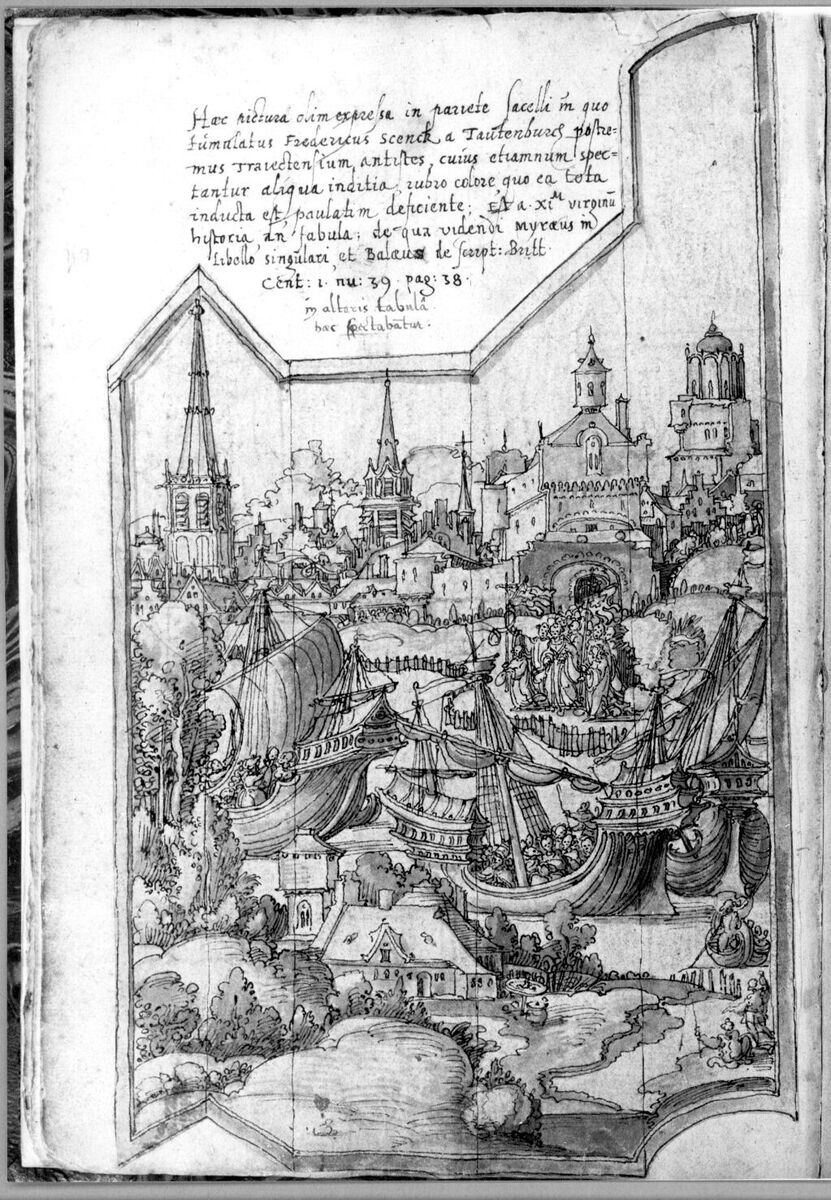 Hæc pictura olim expressa in pariete sacelli in quo
tumulatus Fredericus Scenck a Tautenburch postre=
mus Traiectensium, antistes, cuius etiamnum spec=
tantur aliqua inditia, rubro colore, quo ea tota
inducta est paulatim deficiente; Est a. XI.M virginũ
historia, an fabula; de qua videndi Myræus in
libello singulari, et Balæus de script: Britt.
Cent: 1. nu: 39. pag: 38.
in altaris tabulã
hæc spectabatur.